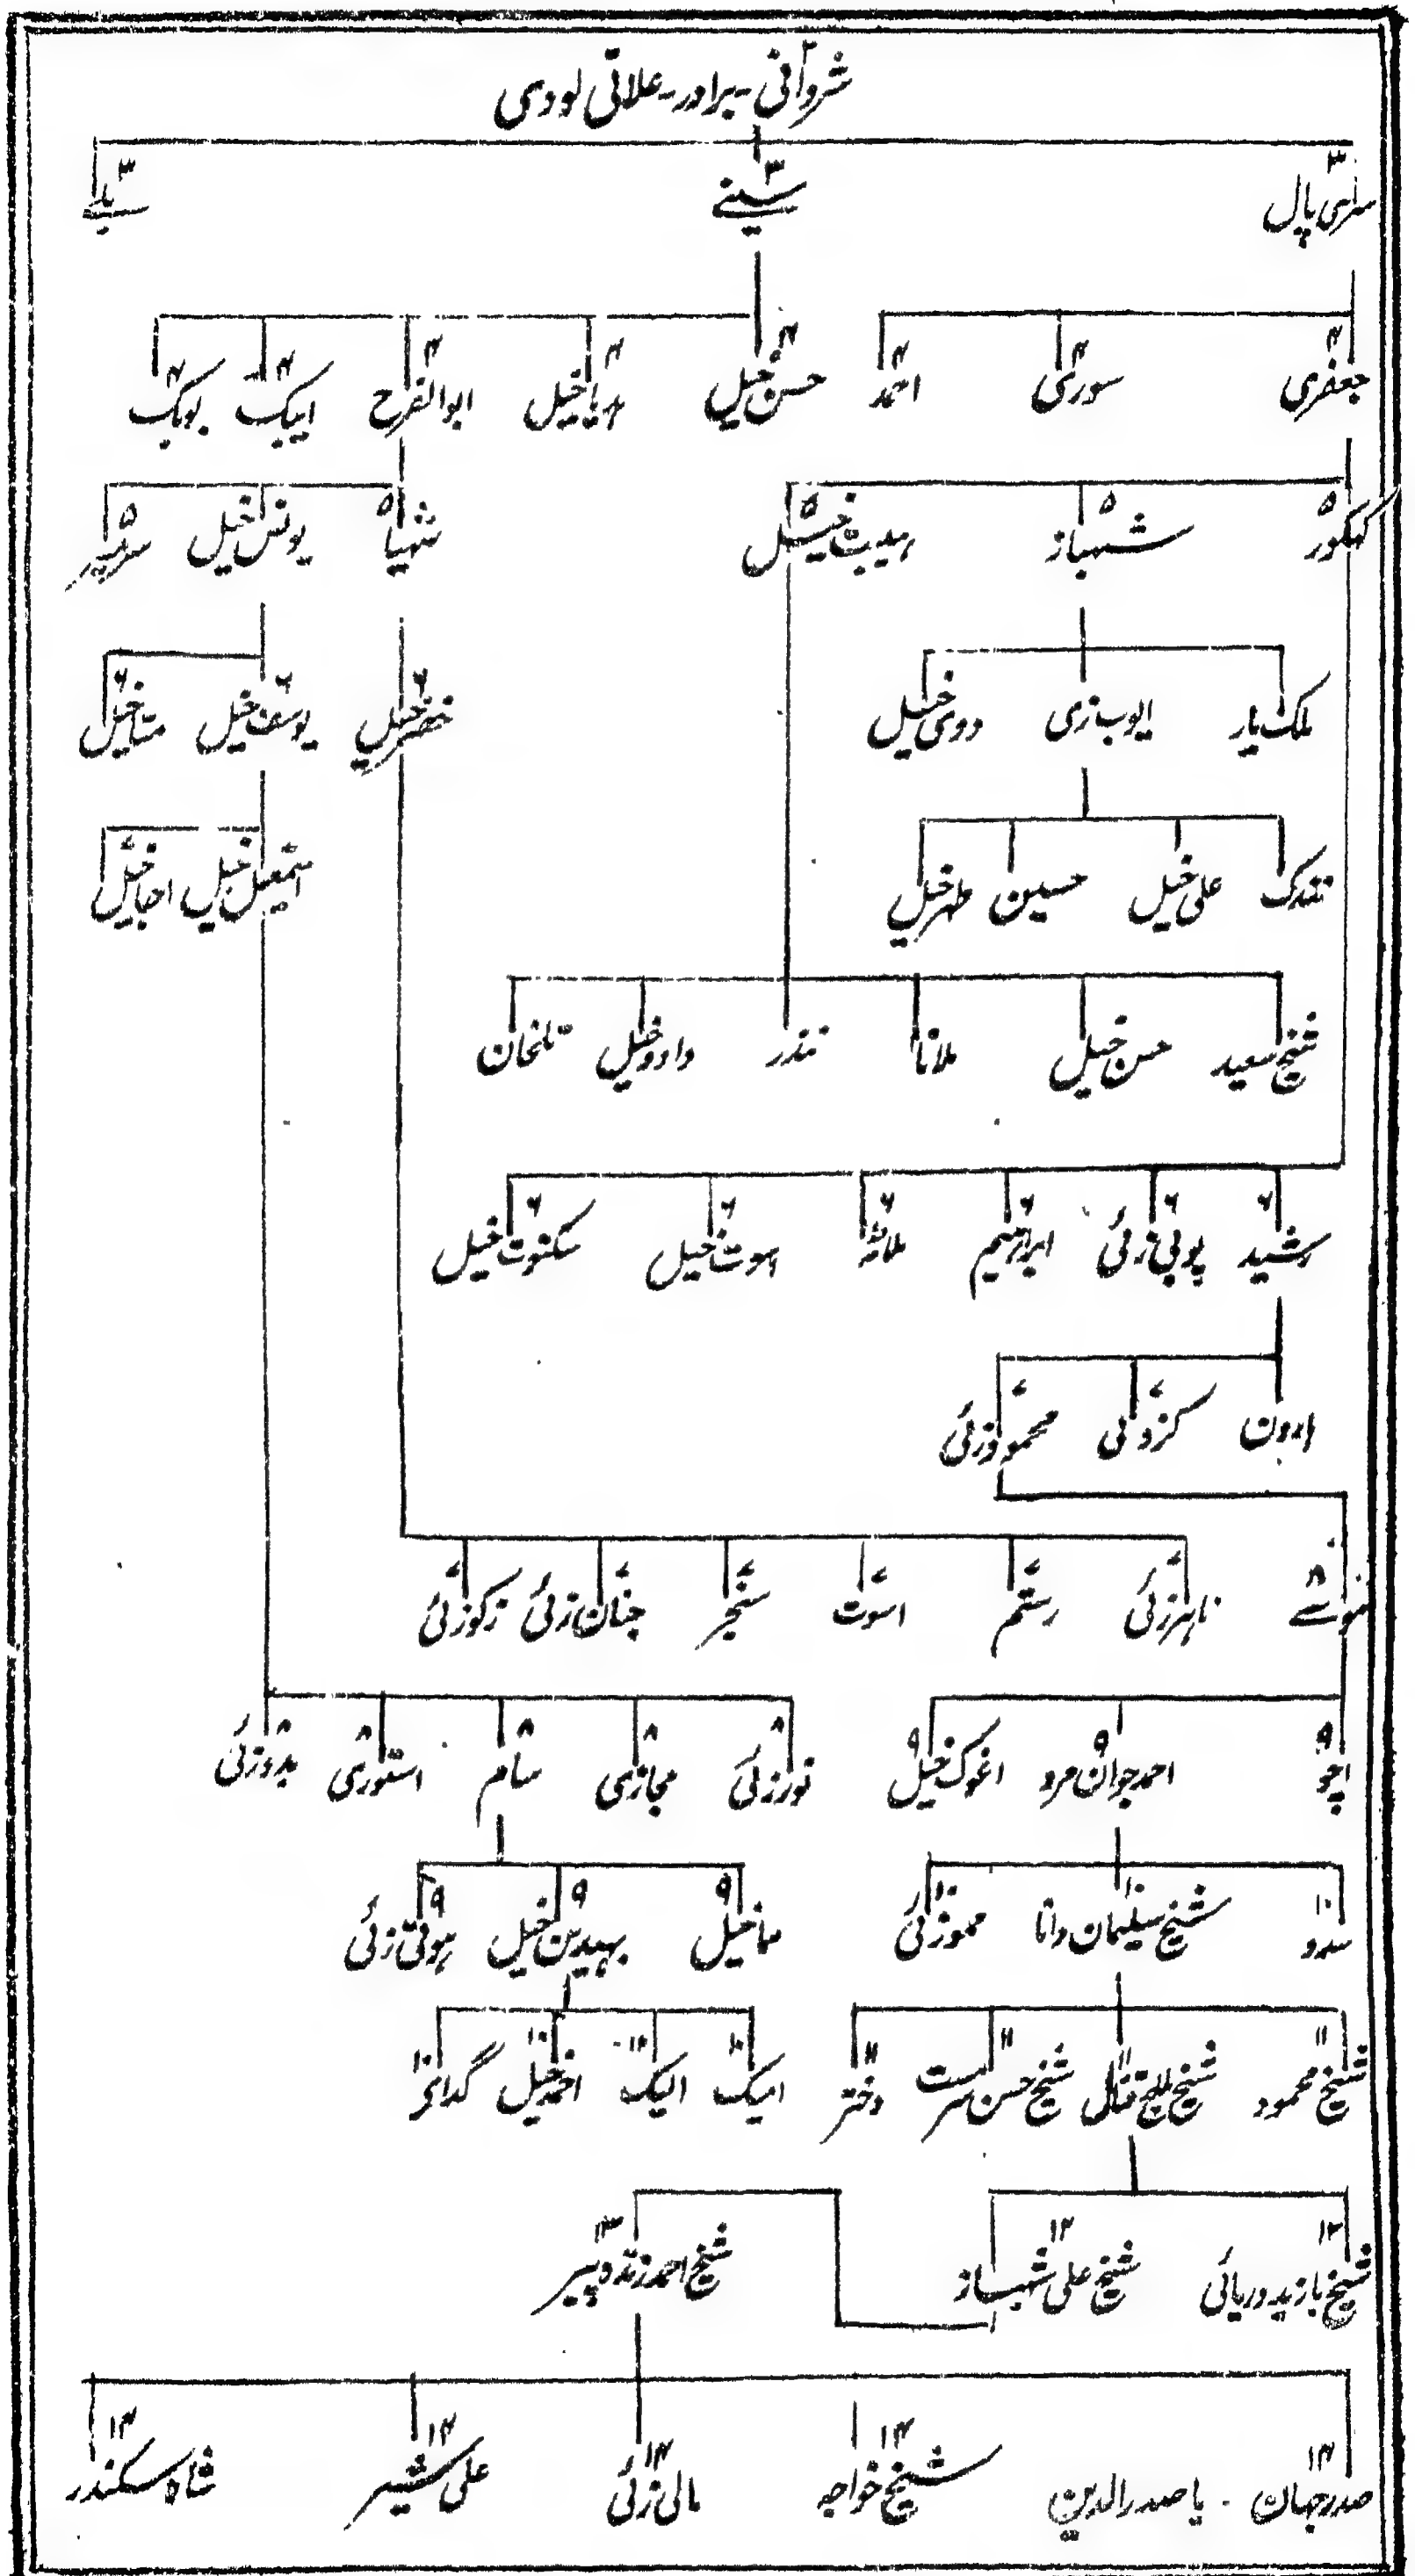 شروانی - برادر - علاتی لودی
۳ سری پال ۳ سینے ۳
۴ جعفری ۴ سوری ۴ احمد ۴ حسن خیل ۴ ۴ ابوالفرح ۴ ایبک ۴ بوبک
۵ کهکور ۵ شهباز ۵ هیبت خیل ۵ شهیا یونس خیل ۵
ملک یار ایوب زی دوی خیل ۶ خضر خیل ۶ یوسف خیل ۶ متاخیل
تندک علی خیل حسین طهر خیل اسمعیل خیل اجاخیل
شیخ سعید حسن خیل ملانا تندر داود خیل تلخان
۶ رشید ۶ پوپی زئی ۶ ابراهیم ۶ ۶ اسوت خیل ۶ سکنوت خیل
هارون ۷ کزوئی ۷ محمود زئی
۸ موسے ۷ ناهر زئی ۷ رستم ۷ اسوت ۷ سنجر ۷ جنان زئی ۷ زکوزئی
۹ اچو ۹ احمد جوان مرد ۹ اغوک خیل ۸ نورزئی ۸ مجازی ۸ سام ۸ استوری ۸ بدوزئی
۱۰ سدو ۱۰ شیخ سلیمان دانا ۱۰ مموزئی ۹ مماخیل ۹ بهیدین خیل ۹ هوتی زئی
۱۱ شیخ محمود ۱۱ شیخ ملیح قتال ۱۱ شیخ حسن سرمست ۱۱ دختر ۱۰ ایبک ۱۰ الیک ۱۰ احمد خیل ۱۰ گدائی
۱۲ شیخ بازید دریائی ۱۲ شیخ علی شهباز ۱۳ شیخ احمد زنده پیر
۱۴ صدر جهان - یا صدر الدین ۱۴ شیخ خواجه ۱۴ مالی زئی ۱۴ علی شیر ۱۴ شاه سکندر